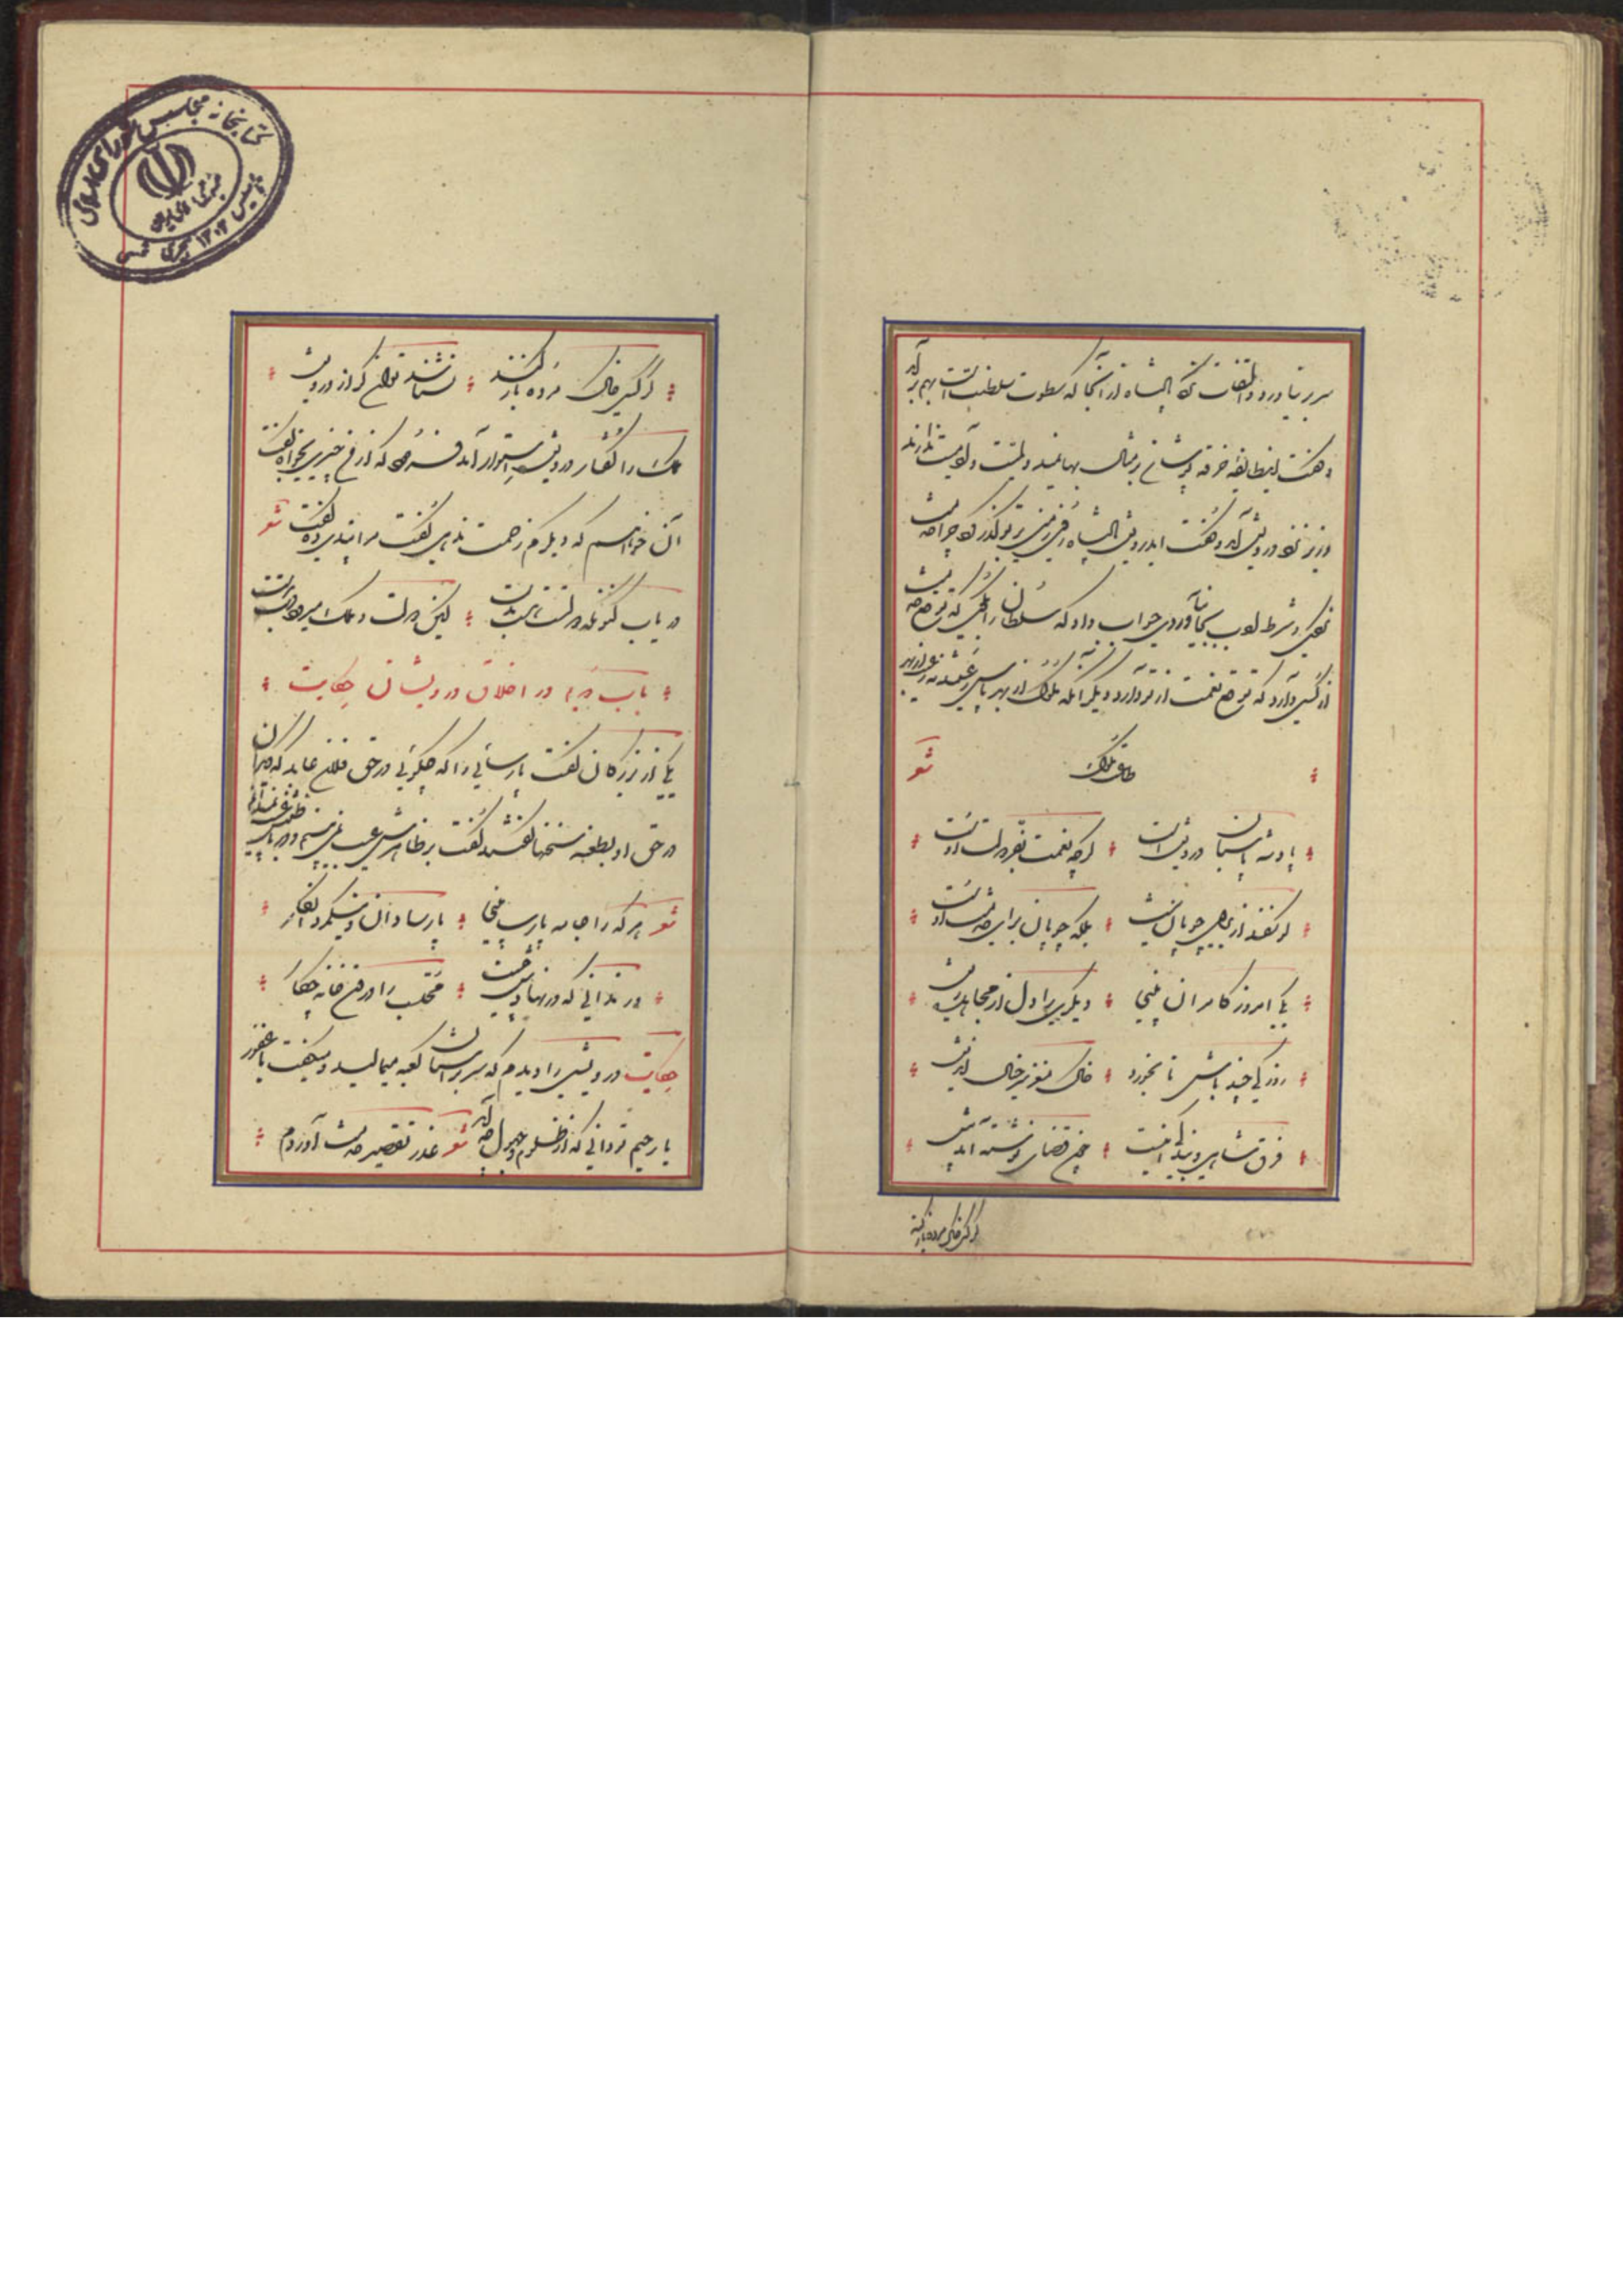 سر بر نیاورد و التفات نکرد پادشاه از آنجا که سطوت سلطنت است بهم برآمد
و گفت این طایفه خرقه پوشان بر مثال بهایمند و اهلیت و آدمیت ندارند
وزیر نزد درویش آمد و گفت ای درویش پادشاه روی زمین بر تو گذر کرد چرا خدمت
نکردی و شرط ادب بجا نیاوردی جواب داد که سلطان را بگوی که توقع خدمت
از کسی دارد که توقع نعمت از تو دارد و دیگر آنکه ملوک از بهر پاس رعیتند نه رعیت از بهر
طاعت ملوک شعر
پادشه پاسبان درویش است گرچه نعمت بفر دولت اوست
گوسفند از برای چوپان نیست بلکه چوپان برای خدمت اوست
یکی امروز کامران بینی دیگری را دل از مجاهده ریش
روزکی چند باش تا بخورد خاک مغز سر خیال اندیش
فرق شاهی و بندگی برخاست چون قضای نوشته آمد پیش
گر کسی خاک مرده باز کند
گر کسی خاک مرده باز کند نشناسد توانگر از درویش
ملک را گفتار درویش استوار آمد فرمود که از من چیزی بخواه گفت
آن خواهم که دیگرم زحمت ندهی گفت مرا پندی ده گفت شعر
دریاب کنونکه نعمتت هست بدست کاین دولت و ملک میرود دست بدست
باب دویم در اخلاق درویشان حکایت
یکی از بزرگان گفت پارسائی را که چگوئی در حق فلان عابد که دیگران
در حق او بطعنه سخنها گفته‌اند گفت بر ظاهرش عیب نمی‌بینم و در باطنش غیب نمیدانم
شعر هر که را جامه پارسا بینی پارسا دان و نیکمرد انگار
ور ندانی که در نهادش چیست محتسب را درون خانه چکار
حکایت درویشی را دیدم که سر بر آستان کعبه میمالید و میگفت یا غفور
یا رحیم تو دانی که از ظلوم و جهول چه آید شعر عذر تقصیر خدمت آوردم
کتابخانه مجلس شورای اسلامی
جمهوری اسلامی ایران
تاسیس ۱۳۰۲ هجری شمسی